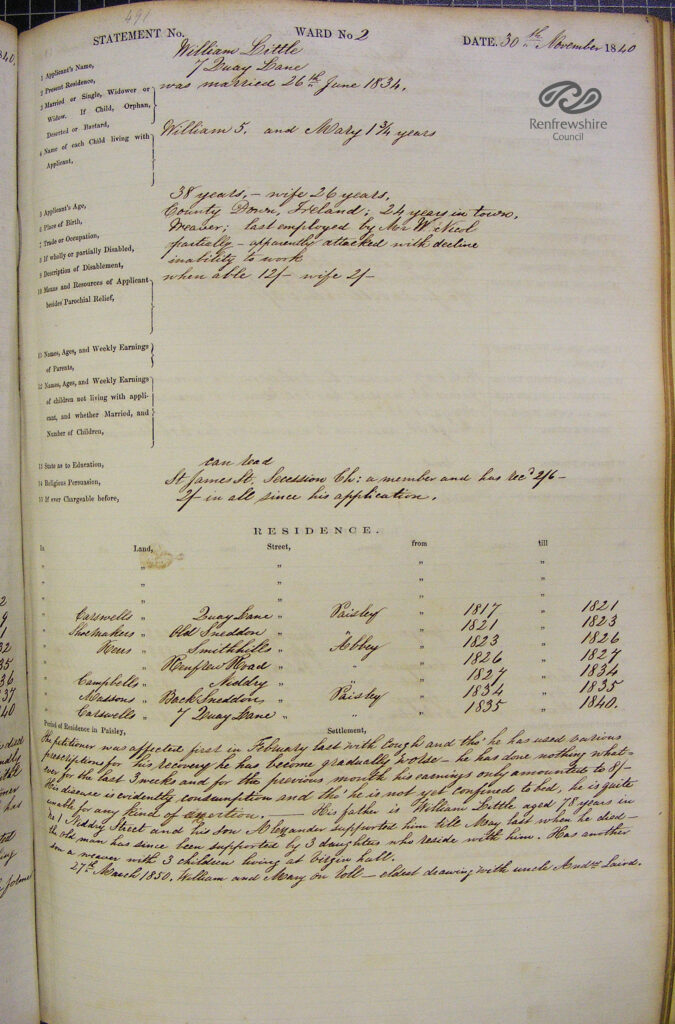 491
STATEMENT No. WARD No 2 DATE 30th November 1840
1 Applicant's Name, William Little
2 Present Residence, 7 Quay Lane
3 Married or Single, Widower or was married 26th June 1834.
Widow. If Child, Orphan,
Deserted or Bastard,
4 Name of each Child living with William 5. and Mary 1¾ years
Applicant,
Renfrewshire
Council
5 Applicant's Age, 38 years, – wife 26 years.
6 Place of Birth, County Down, Ireland; 24 years in town.
7 Trade or Occupation, Weaver; last employed by Mr W. Nicol
8 If wholly or partially Disabled, partially – apparently attacked with decline
9 Description of Disablement, inability to work
10 Means and Resources of Applicant when able 12/– wife 2/–
besides Parochial Relief,
11 Names, Ages, and Weekly Earnings
of Parents,
12 Names, Ages, and Weekly Earnings
of children not living with appli-
cant, and whether Married, and
Number of Children,
13 State as to Education, can read
14 Religious Persuasion, St James St. Secession Ch: a member and has recd 2/6 –
15 If ever Chargeable before, 2/– in all since his application.
RESIDENCE.
In Land, Street, from till
" " " " "
" " " " "
" " " " "
" Carswells " Quay Lane " Paisley " 1817 " 1821
" Shoemakers " Old Sneddon " " " 1821 " 1823
" " Smithhills " Abbey " 1823 " 1826
" " Renfrew Road " " " 1826 " 1827
" Campbells " Niddry " " " 1827 " 1834
" Massons " Back Sneddon " Paisley " 1834 " 1835
" Carswells " 7 Quay Lane " " " 1835 " 1840.
Period of Residence in Paisley, Settlement,
The petitioner was affected first in February last with Cough and tho' he has used various
prescriptions for his recovery he has become gradually worse – he has done nothing what-
ever for the last 3 weeks and for the previous month his earnings only amounted to 8/–
His disease is evidently consumption and tho' he is not yet confined to bed, he is quite
unable for any kind of exertion. — His father is William Little aged 78 years in
No 1 Niddry Street and his son Alexander supported him till May last when he died –
the old man has since been supported by 3 daughters who reside with him. Has another
son a weaver with 3 children living at
27th March 1850. William and Mary on Roll – eldest drawing with uncle Andw Laird.